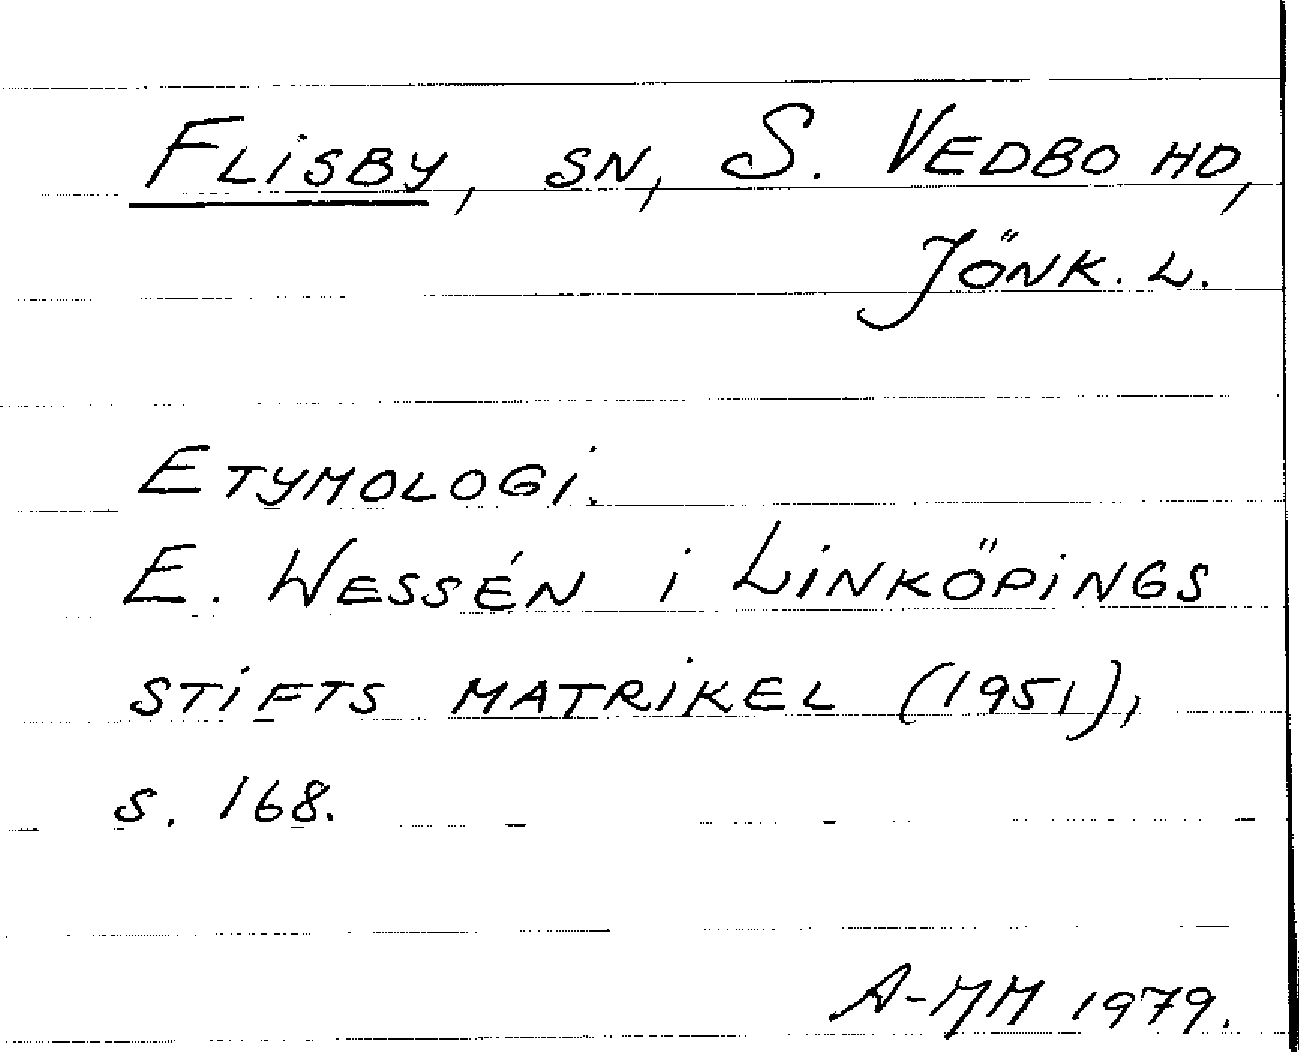 Flisby, sn, S. Vedbo hd,
Jönk. L.
Etymologi.
E. Wessén i Linköpings
stifts matrikel (1951),
s. 168.
A-MM 1979.